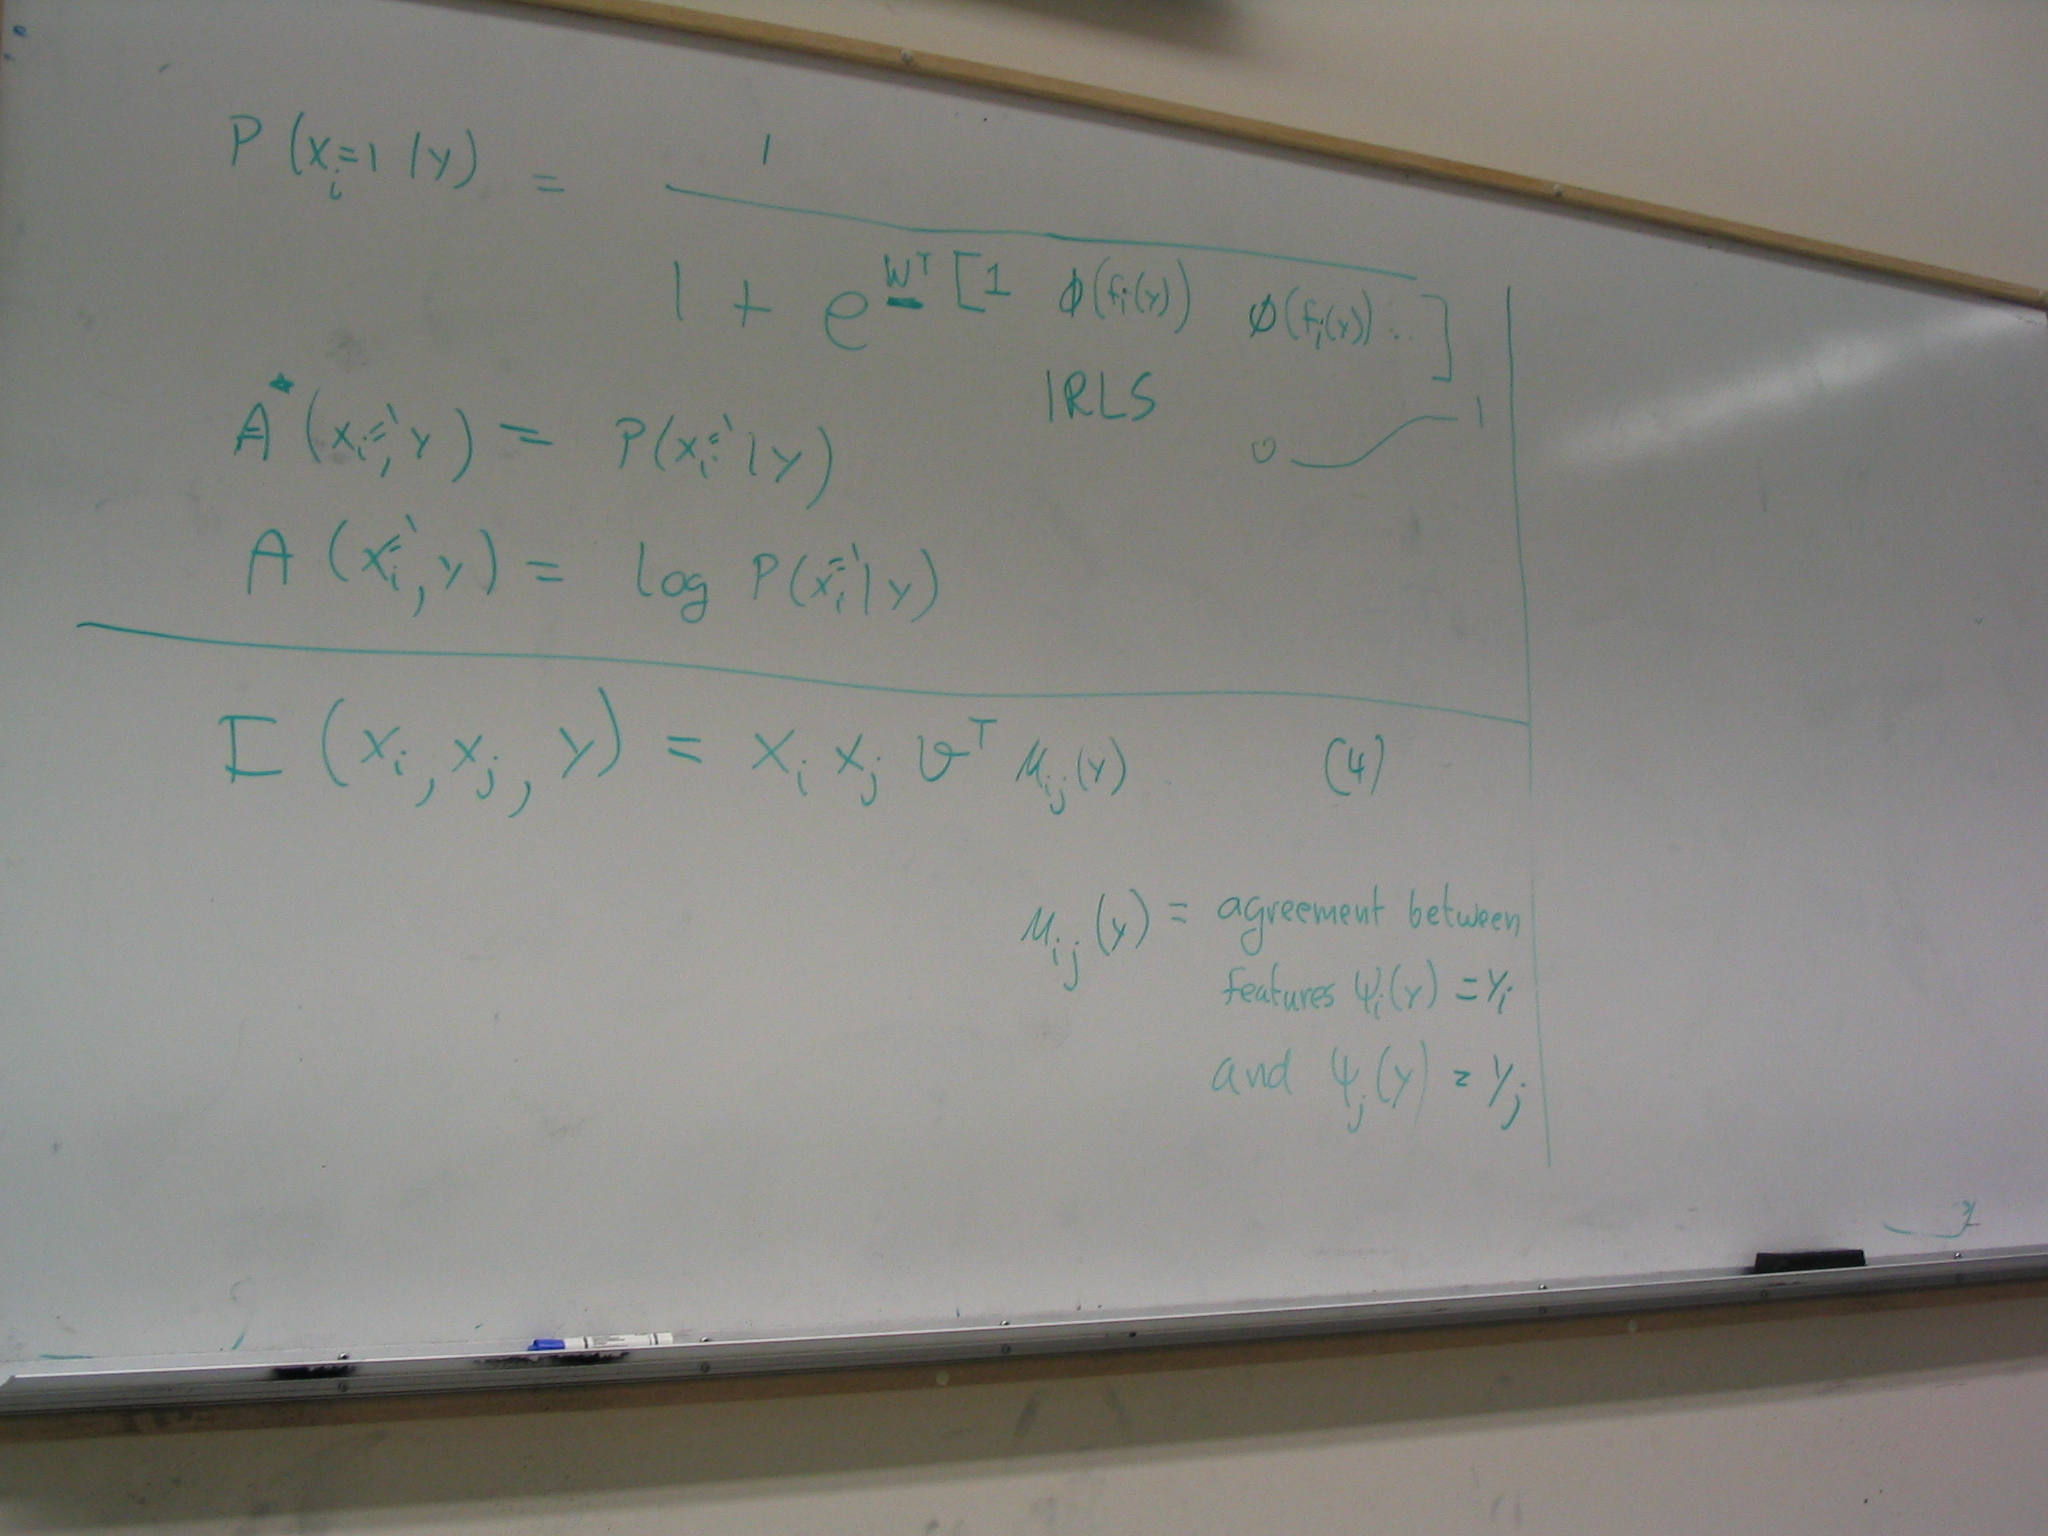 P(xᵢ=1|y) = 1
1 + e^wᵀ [1 φ(fᵢ(y)) φ(fᵢ(y)) .. ]
IRLS
A*(xᵢ=1, y) = P(xᵢ=1|y)
0 1
A(xᵢ=1, y) = log P(xᵢ=1|y)
I(xᵢ, xⱼ, y) = xᵢ xⱼ vᵀ μᵢⱼ(y) (4)
μᵢⱼ(y) = agreement between
features ψᵢ(y) = yᵢ
and ψⱼ(y) = yⱼ